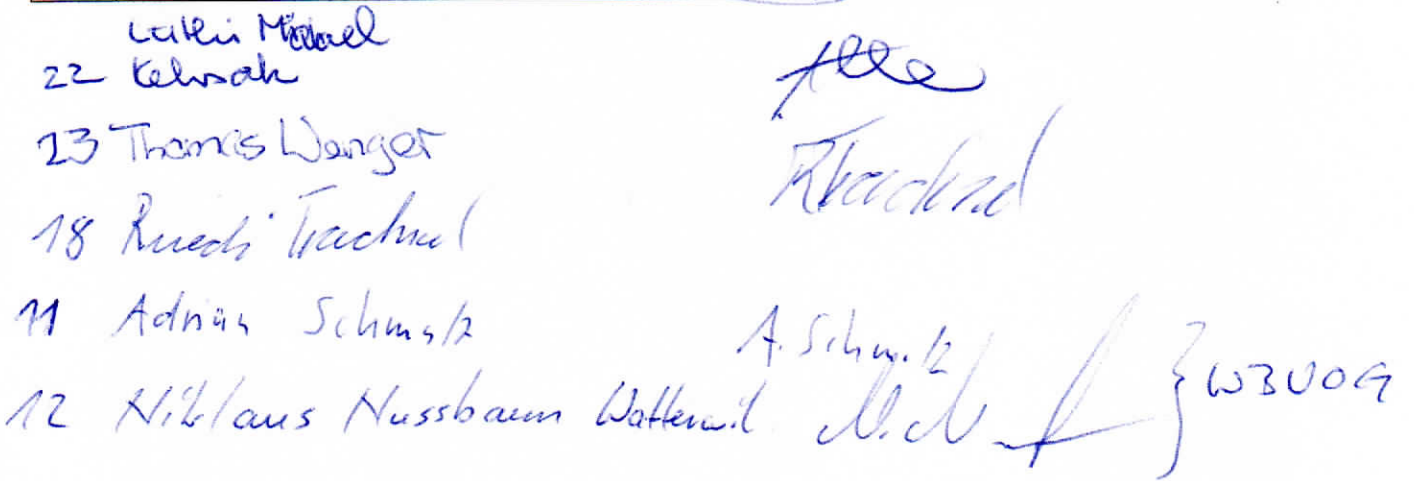 Michael
22 Kehrsatz
23 Thomas Wenger
18 Ruedi Trachsel RTrachsel
11 Adrian Schmutz A. Schmutz
12 Niklaus Nussbaum Wattenwil } WBVOG